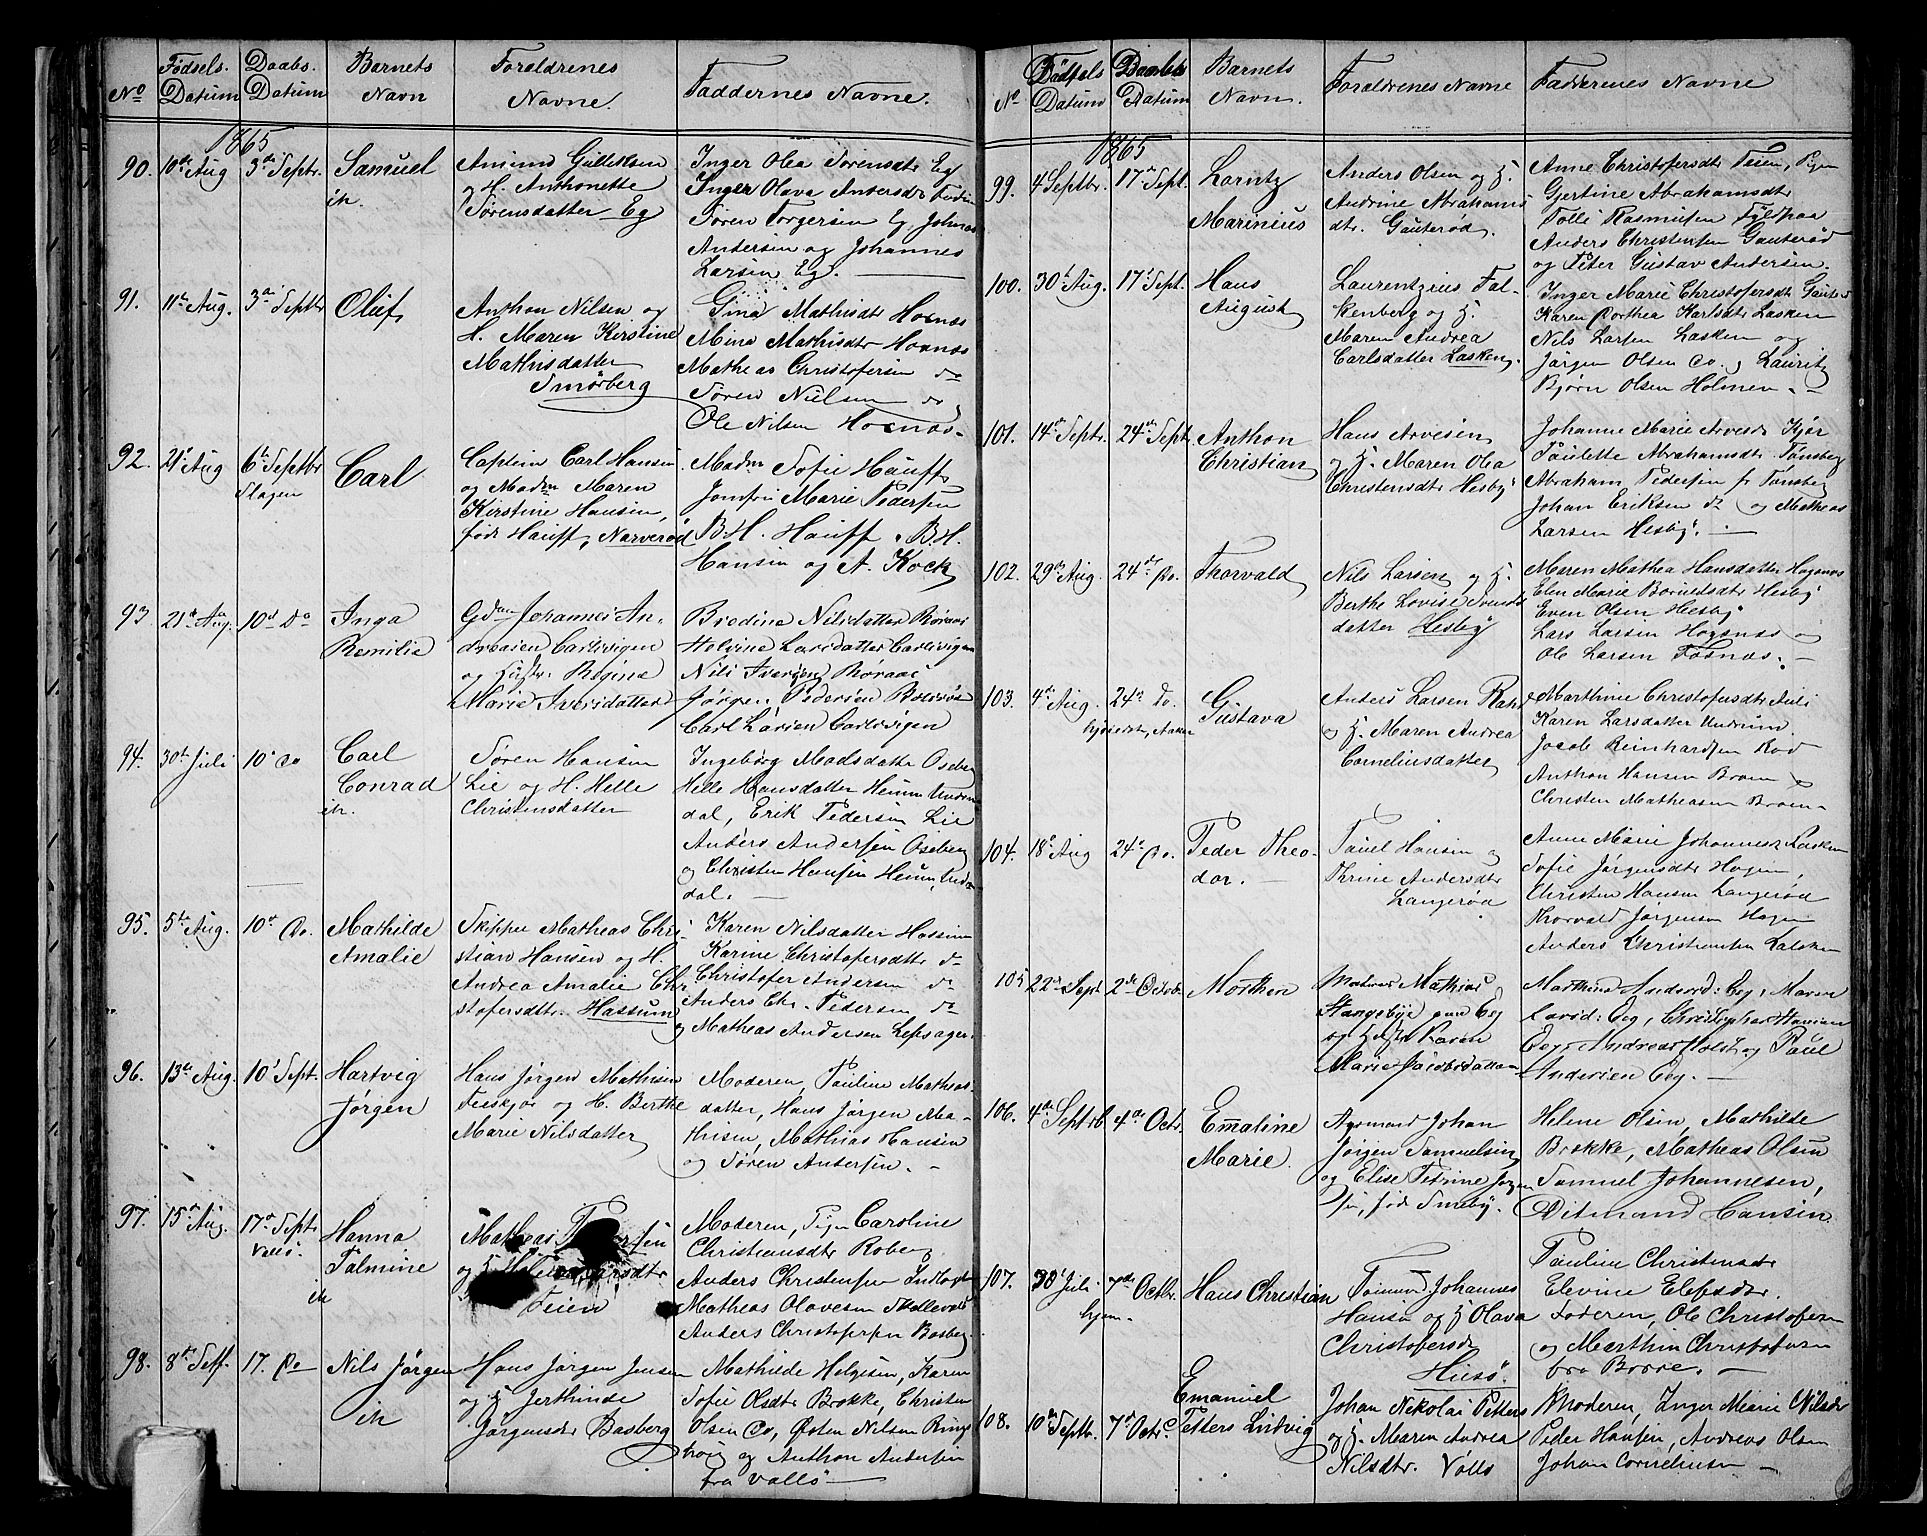 No
Fødsels Datum
Daabs. Datum
Barnets Navn
Forældrenes Navne.
Faddernes Navne.
1865
90. 10de Aug 3de Septr. Samuel
ih.
Amund Gulliksen
og H. Anthonette
Sørensdatter Eg
Inger Olea Sørensdt Eg
Inger Olava Andersdt
Søren Torgersen Eg, Johnas
Andersen og Johannes
Larsen Eg.
91. 11te Aug. 3de Septbr Oluf
Anthon Nilsen og
H. Maren Kirstine
Mathisdatter
Smørberg
Gina Mathisdt Hosnæs
Mina Mathisdtr Hosnæs
Matheas Christofersen do
Søren Nielsen do
Ole Nilsen Hosnæs.
92. 21de Aug 6te Septbr
Slagen
Carl
Captein Carl Hansen
og Madm Maren
Kirstine Hansen,
født Hauff, Narverød
Madm Sofie Hauff
Jomfru Marie Pedersen
B. H. Hauff, B. H.
Hansen og A. Kock
93 21de Aug. 10de Do Inga
Remilie
Gdm Johannes An-
dreasen Carlsvigen
og Hustr. Regine
Marie Iversdatter
Bredine Nilsdatter Røraas
Helvine Larsdatter Carlsvigen
Nils Iversen Røraas
Jørgen Pedersen
Carl Larsen Carlsvigen
94. 30te Juli 10de Do Carl
Conrad
ih.
Søren Hansen
Lie og H. Helle
Christensdatter
Ingeborg Madsdatter Oseberg
Helle Hansdatter Heum Undrum
dal, Erik Pedersen Lie
Anders Andersen Oseberg
og Christen Hansen Heum, Undrum
dal.
95. 5te Aug. 10de Do. Mathilde
Amalie
Skipper Matheas Chri-
stian Hansen og H.
Andrea Amalie Chr
stofersdtr. Hassum
Karen Nilsdatter Hassum
Karine Christofersdtr do
Christofer Andersen do
Anders Chr. Pedersen do
og Matheas Andersen Lefsager.
96. 13de Aug. 10de Sept. Hartvig
Jørgen
Hans Jørgen Mathisen
Feeskjær og H. Berthe
Marie Nilsdatter
Moderen, Pauline Matheas
datter, Hans Jørgen Ma-
thisen, Mathias Hansen
og Søren Andersen.
97. 15de Aug. 17de Septr
Vallø.
Hanna
Palmine
ih
Matheas
og H.
Feien
Moderen, Pigen Caroline
Christiansdtr Roberg
Anders Christensen
Matheas Olavesen
Anders Christofersen Basberg
98. 8de Sept. 17. Do Nils Jørgen
ih
Hans Jørgen Jensen
og H. Jerthinde
Jørgensdtr Basberg
Mathilde Helgesen, Karen
Sofie Olsdtr Brekke, Christen
Olsen Do, Østen Nilsen Rings
houg og Anthon Andersen
fra Vallø
No
Fødsels Datum
Daabs Datum
Barnets Navn.
Forældrenes Navne
Faddernes Navne
1865
99. 4 Septbr. 17de Sept. Laritz
Marinius
Anders Olsen og H.
Andrine Abrahams
dtr. Gauterød.
Anne Christofersdtr Feien, Pigen
Gjertine Abrahamsdtr
Tolli Rasmusen Fyldpaa
Anders Christensen Gauterød
og Peter Gustav Andersen.
100. 30te Aug. 17de Sept. Hans
August
Laurentzius Fal-
kenberg og H.
Maren Andrea
Carlsdatter Lasken.
Inger Marie Christofersdtr Gauter
Karen Dorthea Karlsdtr Lasken
Nils Larsen Lasken og
Jørgen Olsen Do. Lauritz
Bjørn Olsen Holmen.
101. 14de Septr. 24de Sept. Anthon
Christian
Hans Arvesen
og H. Maren Olea
Christensdtr Hesby
Johanne Marie Arvesdt Kjær
Paulette Abrahamsdtr Tønsberg
Abraham Pedersen fr Tønsberg
Johan Eriksen do og Matheas
Larsen Hesby.
102. 29de Aug. 24de Do. Thorvald
Nils Larsen og H.
Berthe Lovise Svends
datter Hesby
Maren Mathea Hansdatter Hogsnæs
Elen Marie Bornilsdtr Hesby
Even Olsen Hesby
Lars Larsen Hogsnæs og
Ole Larsen Fosnæs.
103. 4de Aug. 24de Do. Gustava
Anders Larsen
og H. Maren Andrea
Corneliusdatter
Marthine Christofersdtr Auli
Karen Larsdatter Undrum.
Jacob Reinhardsen Rød
Anthon Hansen Broen og
Christen Matheasen Broen
104. 18de Aug 24de Do. Peder Theo-
dor.
Paul Hansen og
Thrine Andersdtr
Langerød
Anne Marie Johannesdt Lasken
Sofie Jørgensdtr Hogen
Christen Hansen Langerød
Thorvald Jørgensen Hogen
Anders Christiansen Lasken
105 22de Sept 2de Octobr Morthen
Mathias
Stangebye paa Eeg
og Hustr Karen
Marie Jacobsdatter
Marthine Andersd: Eeg, Maren
Larsd: Eeg, Christopher Hansen
Eeg, Andreas Holst og Paul
Andersen Eeg.
106. 4de Septrb 4de Octr. Emaline
Marie.
Agsmand Johan
Jørgen Samuelsen
og Elise Petrine Jørgen
sen, født Smeby.
Helene Olsen, Mathilde
Brekke, Matheas Olsen
Samuel Johannesen,
Ditmand Hansen.
107. 30te Juli 7de Octbr. Hans Christian
hjem.
Tømmermd Johannes
Hansen og H Olava
Christofersdt
Husø.
Pauline Christensdtr
Elevine Elefsdtr.
Faderen, Ole Christofersen
og Marthin Christofersen
fra Borre.
108. 10de Septbr. 7de Octr. Emanuel
Petters Ludvig
Johan Nikolai Petters
og H. Maren Andrea
Nilsdtr. Vallø
Moderen, Inger Marie Nilsdtr
Peder Hansen, Andreas Olsen
Johan Corneliusen